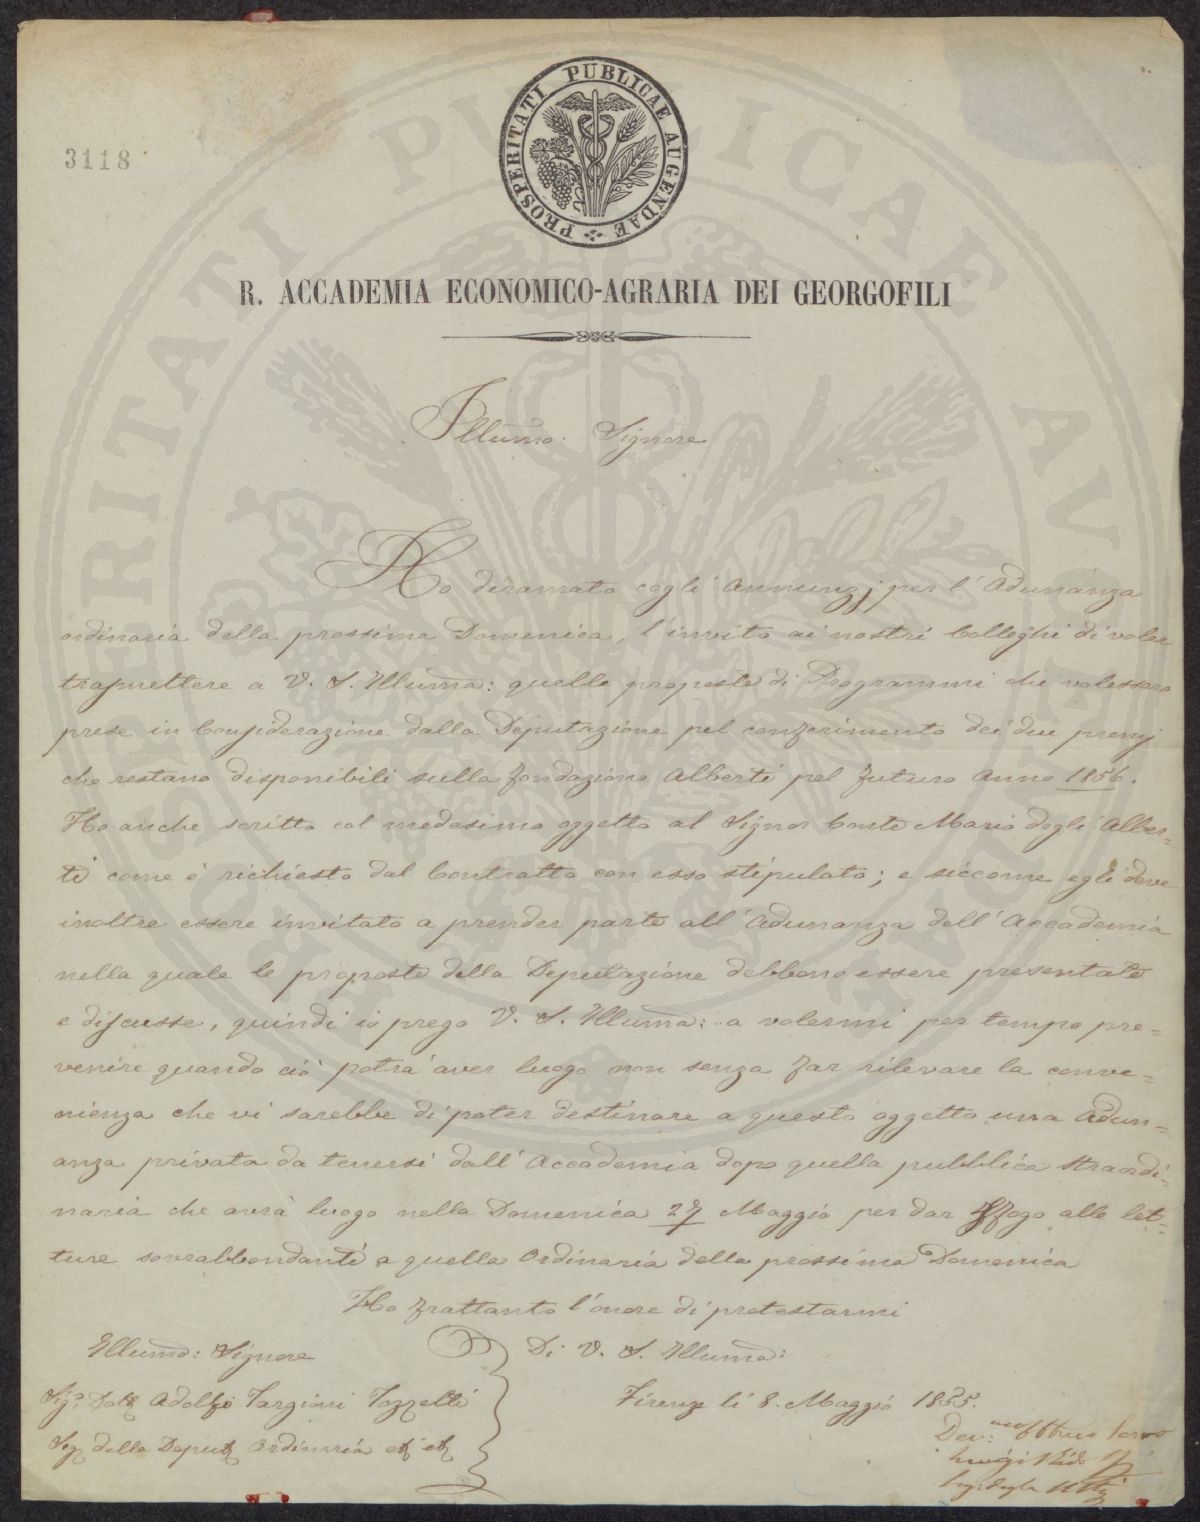 PROSPERITATI PUBLICAE AUGENDAE
3118
R. ACCADEMIA ECONOMICO-AGRARIA DEI GEORGOFILI
Illumo: Signore
Ho diramato cogli Annunzj per l'Adunanza
ordinaria della prossima Domenica, l'invito ai nostri Colleghi di voler
trasmettere a V. S. Illuma: quelle proposte di Programmi che volessero
prese in Considerazione dalla Deputazione pel conferimento dei due premj
che restano disponibili sulla fondazione Alberti pel futuro Anno 1856.
Ho anche scritto col medesimo oggetto al Signor Conte Mario degli Alber=
ti come è richiesto dal Contratto con esso stipulato; e siccome egli deve
inoltre essere invitato a prender parte all'Adunanza dell'Accademia
nella quale le proposte della Deputazione debbono essere presentate
e discusse, quindi io prego V. S. Illuma: a volermi per tempo pre=
venire quando ciò potrà aver luogo non senza far rilevare la conve=
nienza che vi sarebbe di poter destinare a questo oggetto una Adun=
anza privata da tenersi dall'Accademia dopo quella pubblica straordi=
naria che avrà luogo nella Domenica 27 Maggio per dar sfogo alle let=
ture sovrabbondanti a quella Ordinaria della prossima Domenica
Ho frattanto l'onore di protestarmi
Illumo: Signore
Di V. S. Illuma:
Sigr Dott Adolfo Targioni Tozzetti
Firenze li 8. Maggio 1855.
Seg della Deput Ordinaria ec ec
Dev:mo Obbmo Servo
Luigi